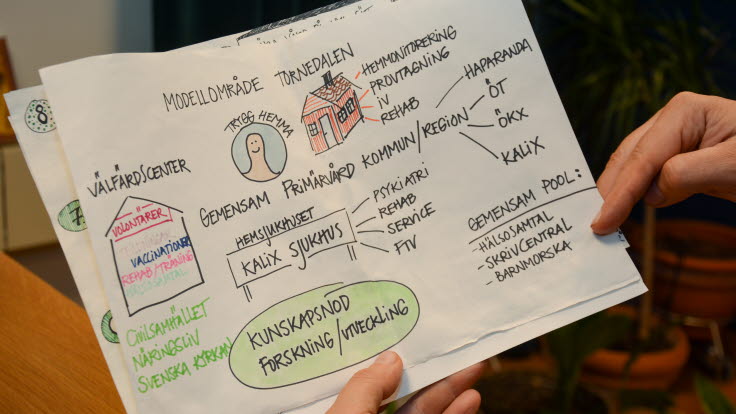 MODELLOMRÅDE TORNEDALEN
TRYGG HEMMA
HEMMONITORERING
PROVTAGNING
IV
REHAB
GEMENSAM PRIMÄRVÅRD KOMMUN/REGION
HAPARANDA
ÖT
ÖKX
KALIX
VÄLFÄRDSCENTER
VOLONTÄRER
VACCINATIONER
REHAB/TRÄNING
HÄLSOSAMTAL
CIVILSAMHÄLLET
NÄRINGSLIV
SVENSKA KYRKAN
HEMSJUKHUSET
KALIX SJUKHUS
PSYKIATRI
REHAB
SERVICE
FTV
GEMENSAM POOL:
-HÄLSOSAMTAL
-SKRIVCENTRAL
-BARNMORSKA
KUNSKAPSNOD
FORSKNING/UTVECKLING
8
7